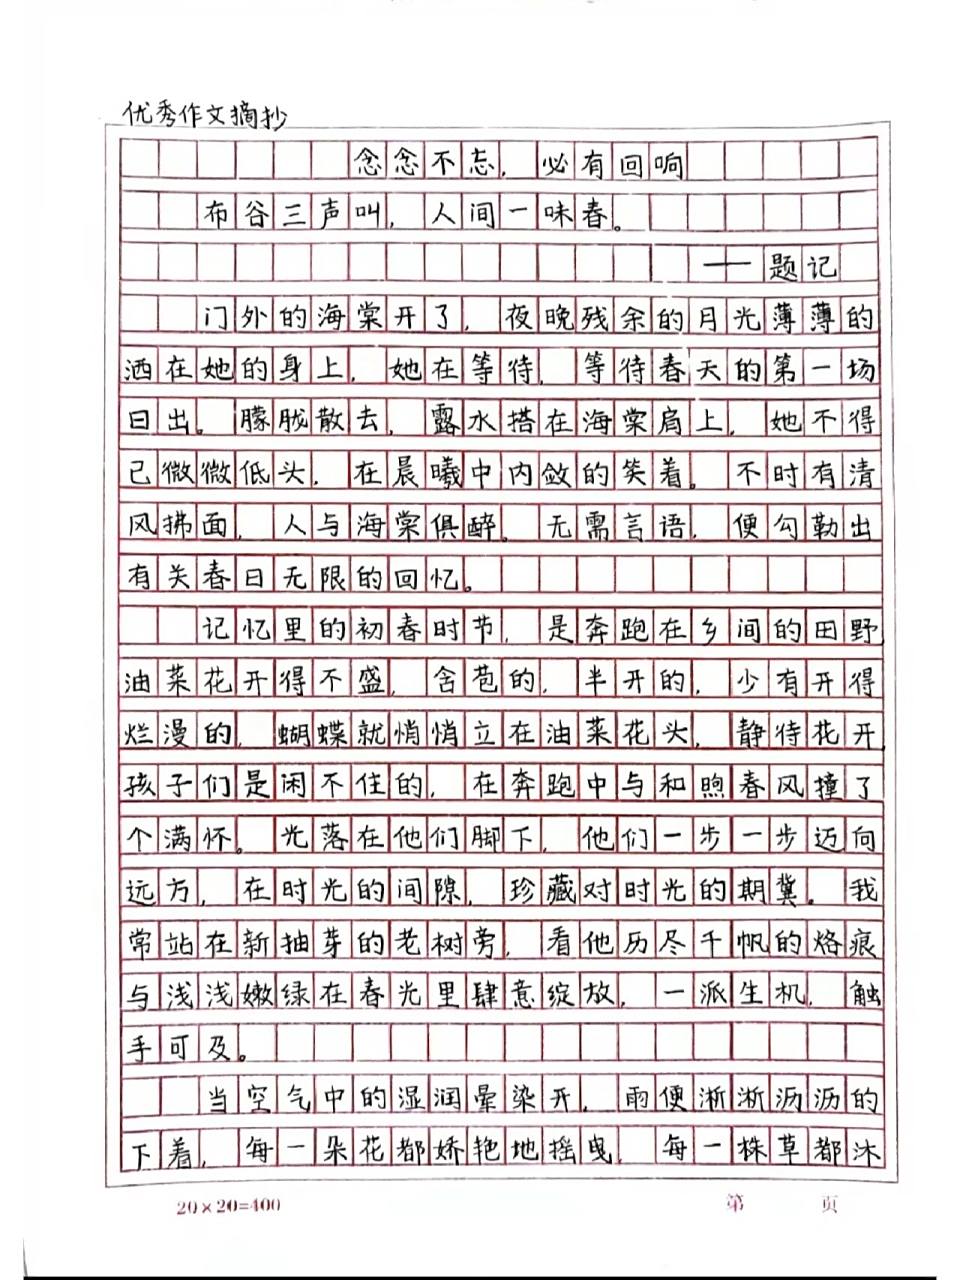 优秀作文摘抄
念念不忘，必有回响
布谷三声叫，人间一味春。
——题记
门外的海棠开了，夜晚残余的月光薄薄的
洒在她的身上，她在等待，等待春天的第一场
日出。朦胧散去，露水搭在海棠肩上，她不得
已微微低头，在晨曦中内敛的笑着。不时有清
风拂面，人与海棠俱醉。无需言语，便勾勒出
有关春日无限的回忆。
记忆里的初春时节，是奔跑在乡间的田野
油菜花开得不盛，含苞的，半开的，少有开得
烂漫的，蝴蝶就悄悄立在油菜花头，静待花开
孩子们是闲不住的，在奔跑中与和煦春风撞了
个满怀。光落在他们脚下，他们一步一步迈向
远方，在时光的间隙，珍藏对时光的期冀。我
常站在新抽芽的老树旁，看他历尽千帆的烙痕
与浅浅嫩绿在春光里肆意绽放，一派生机，触
手可及。
当空气中的湿润晕染开，雨便淅淅沥沥的
下着，每一朵花都娇艳地摇曳，每一株草都沐
20×20=400 第 页